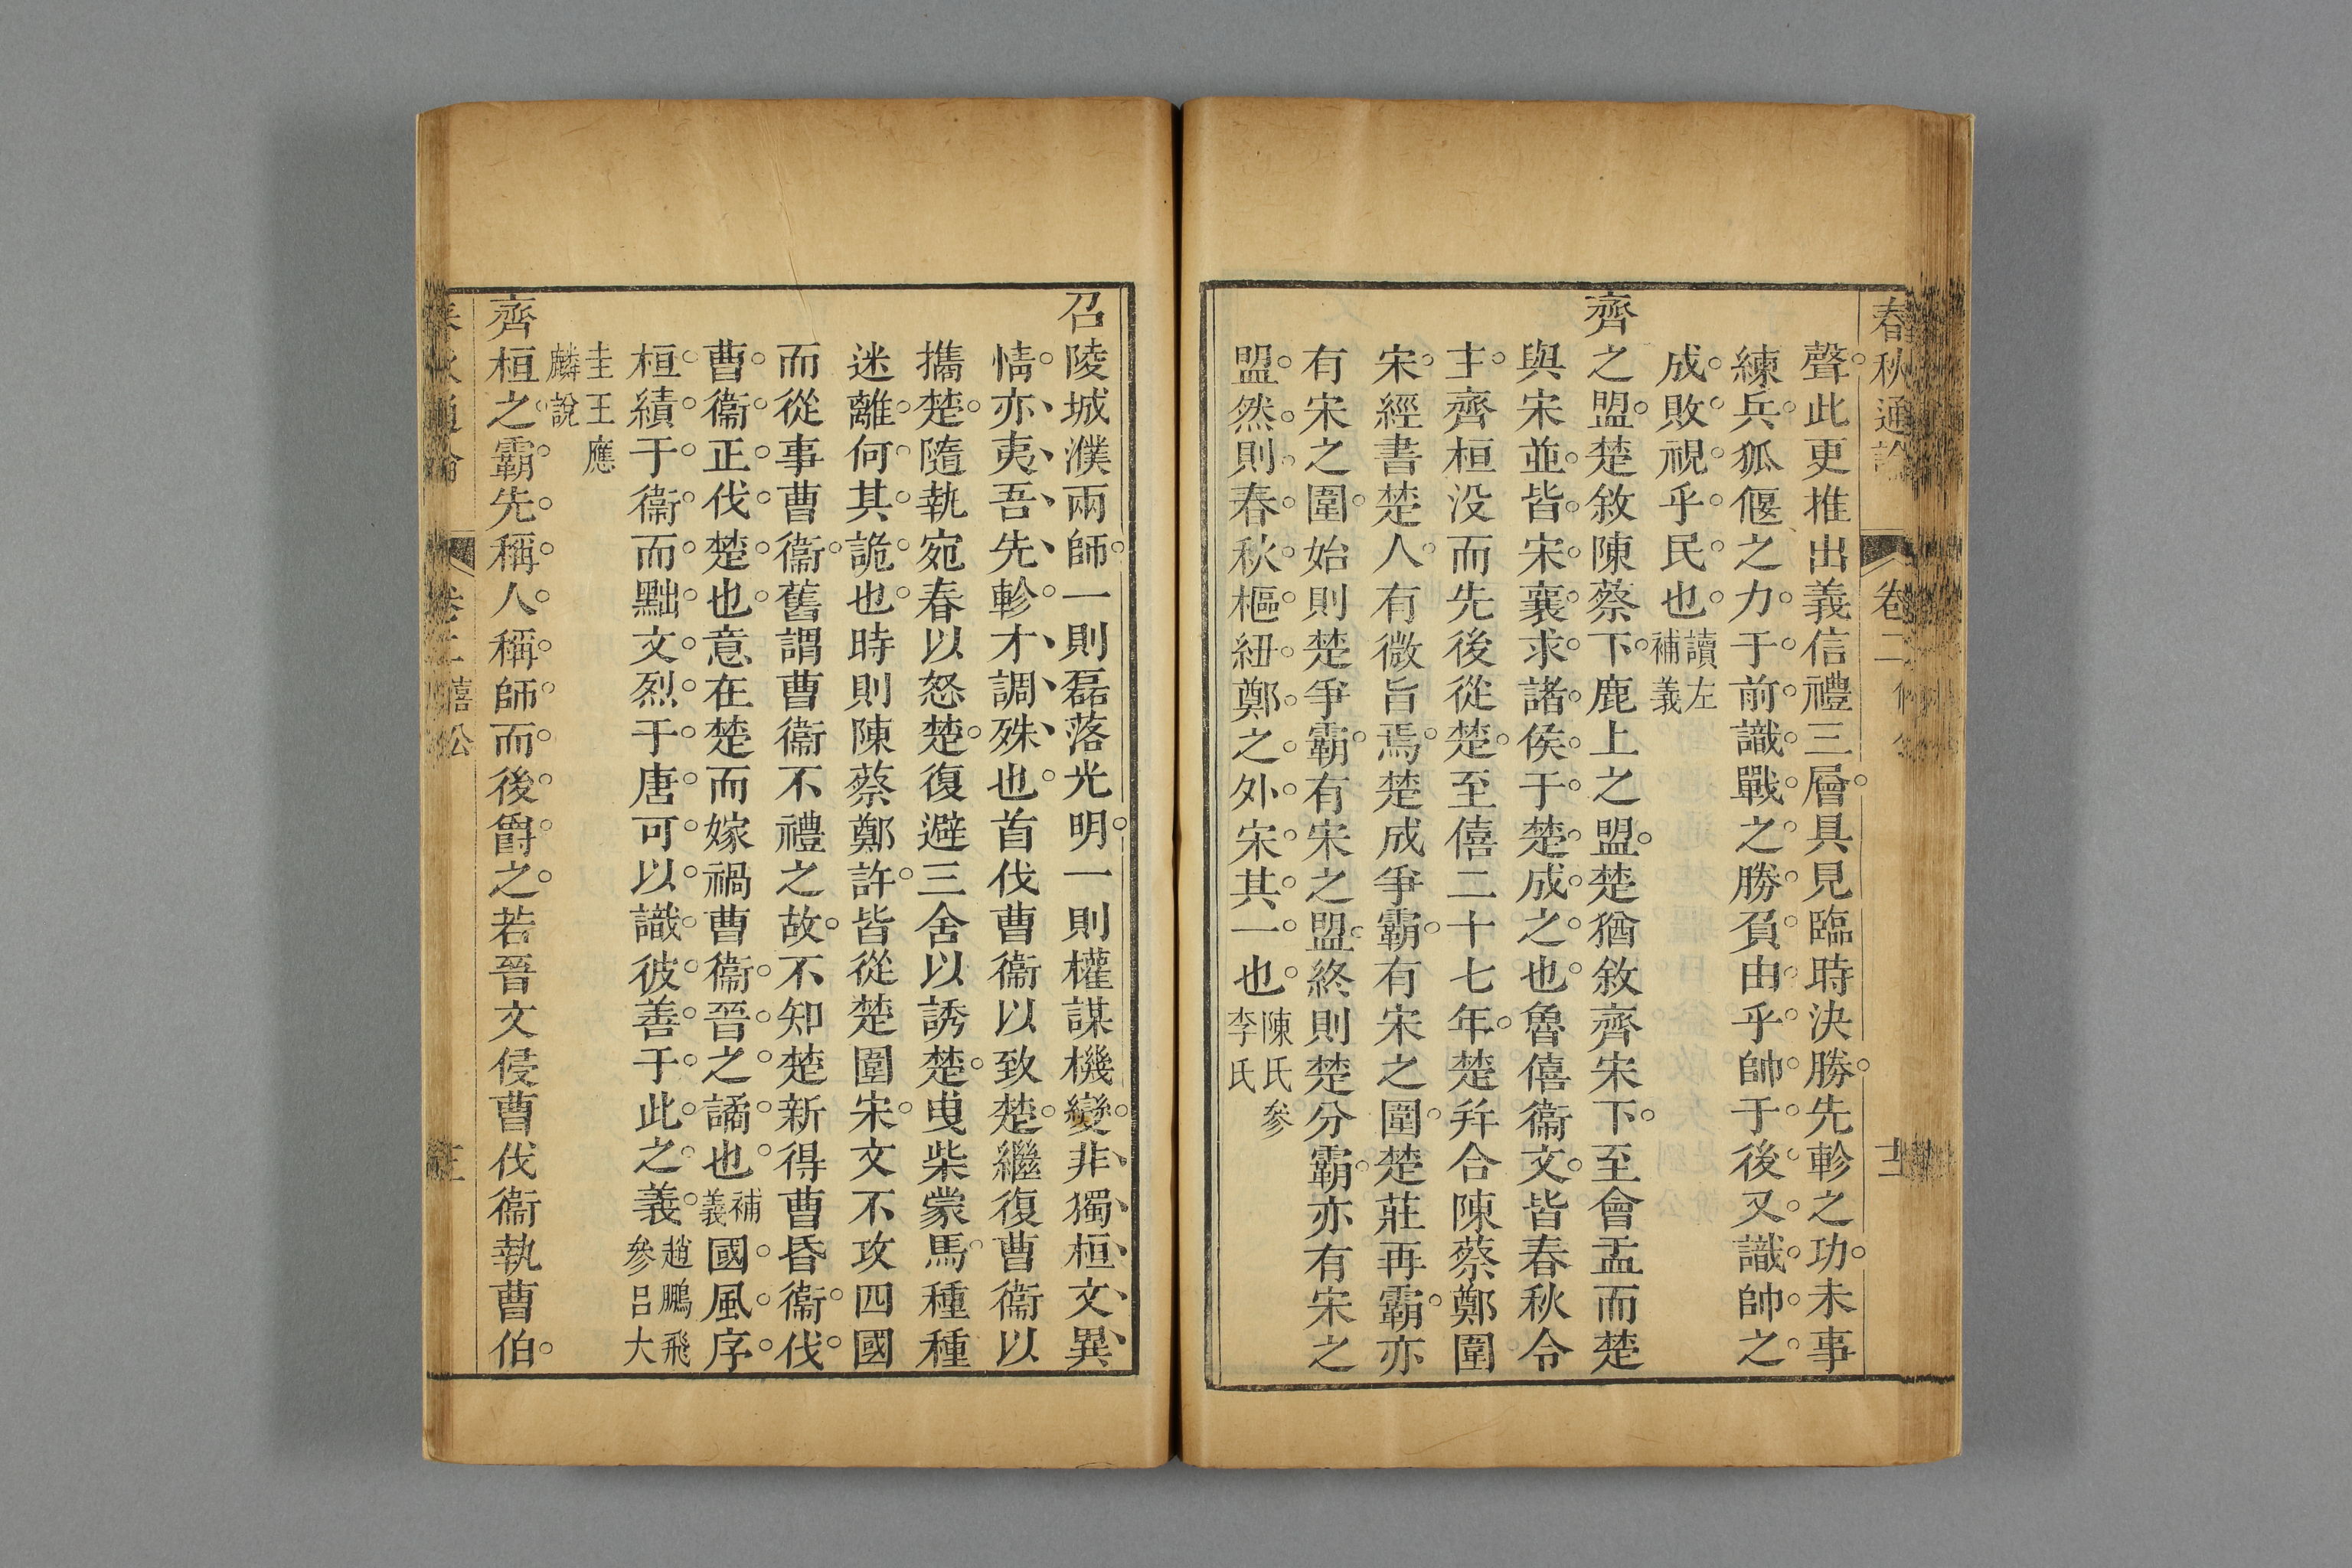 春秋通論 卷二 僖公 十三
聲此更推出義信禮三層具見臨時決勝先軫之功未事
練兵狐偃之力于前識戰之勝負由乎帥于後又識帥之
成敗視乎民也讀左補義
齊之盟楚敘陳蔡下鹿上之盟楚猶敘齊宋下至會盂而楚
與宋並皆宋襄求諸侯于楚成之也魯僖衞文皆春秋令
主齊桓没而先後從楚至僖二十七年楚并合陳蔡鄭圍
宋經書楚人有微旨焉楚成爭霸有宋之圍楚莊再霸亦
有宋之圍始則楚爭霸有宋之盟終則楚分霸亦有宋之
盟然則春秋樞紐鄭之外宋其一也陳氏李氏參
召陵城濮兩師一則磊落光明一則權謀機變非獨桓文異
情亦夷吾先軫才調殊也首伐曹衞以致楚繼復曹衞以
攜楚隨執宛春以怒楚復避三舍以誘楚曳柴蒙馬種種
迷離何其詭也時則陳蔡鄭許皆從楚圍宋文不攻四國
而從事曹衞舊謂曹衞不禮之故不知楚新得曹昏衞伐
曹衞正伐楚也意在楚而嫁禍曹衞晉之譎也補義國風序
桓績于衞而黜文烈于唐可以識彼善于此之義趙鵬飛參呂大
圭王應麟說
齊桓之霸先稱人稱師而後爵之若晉文侵曹伐衞執曹伯
卷二 僖公